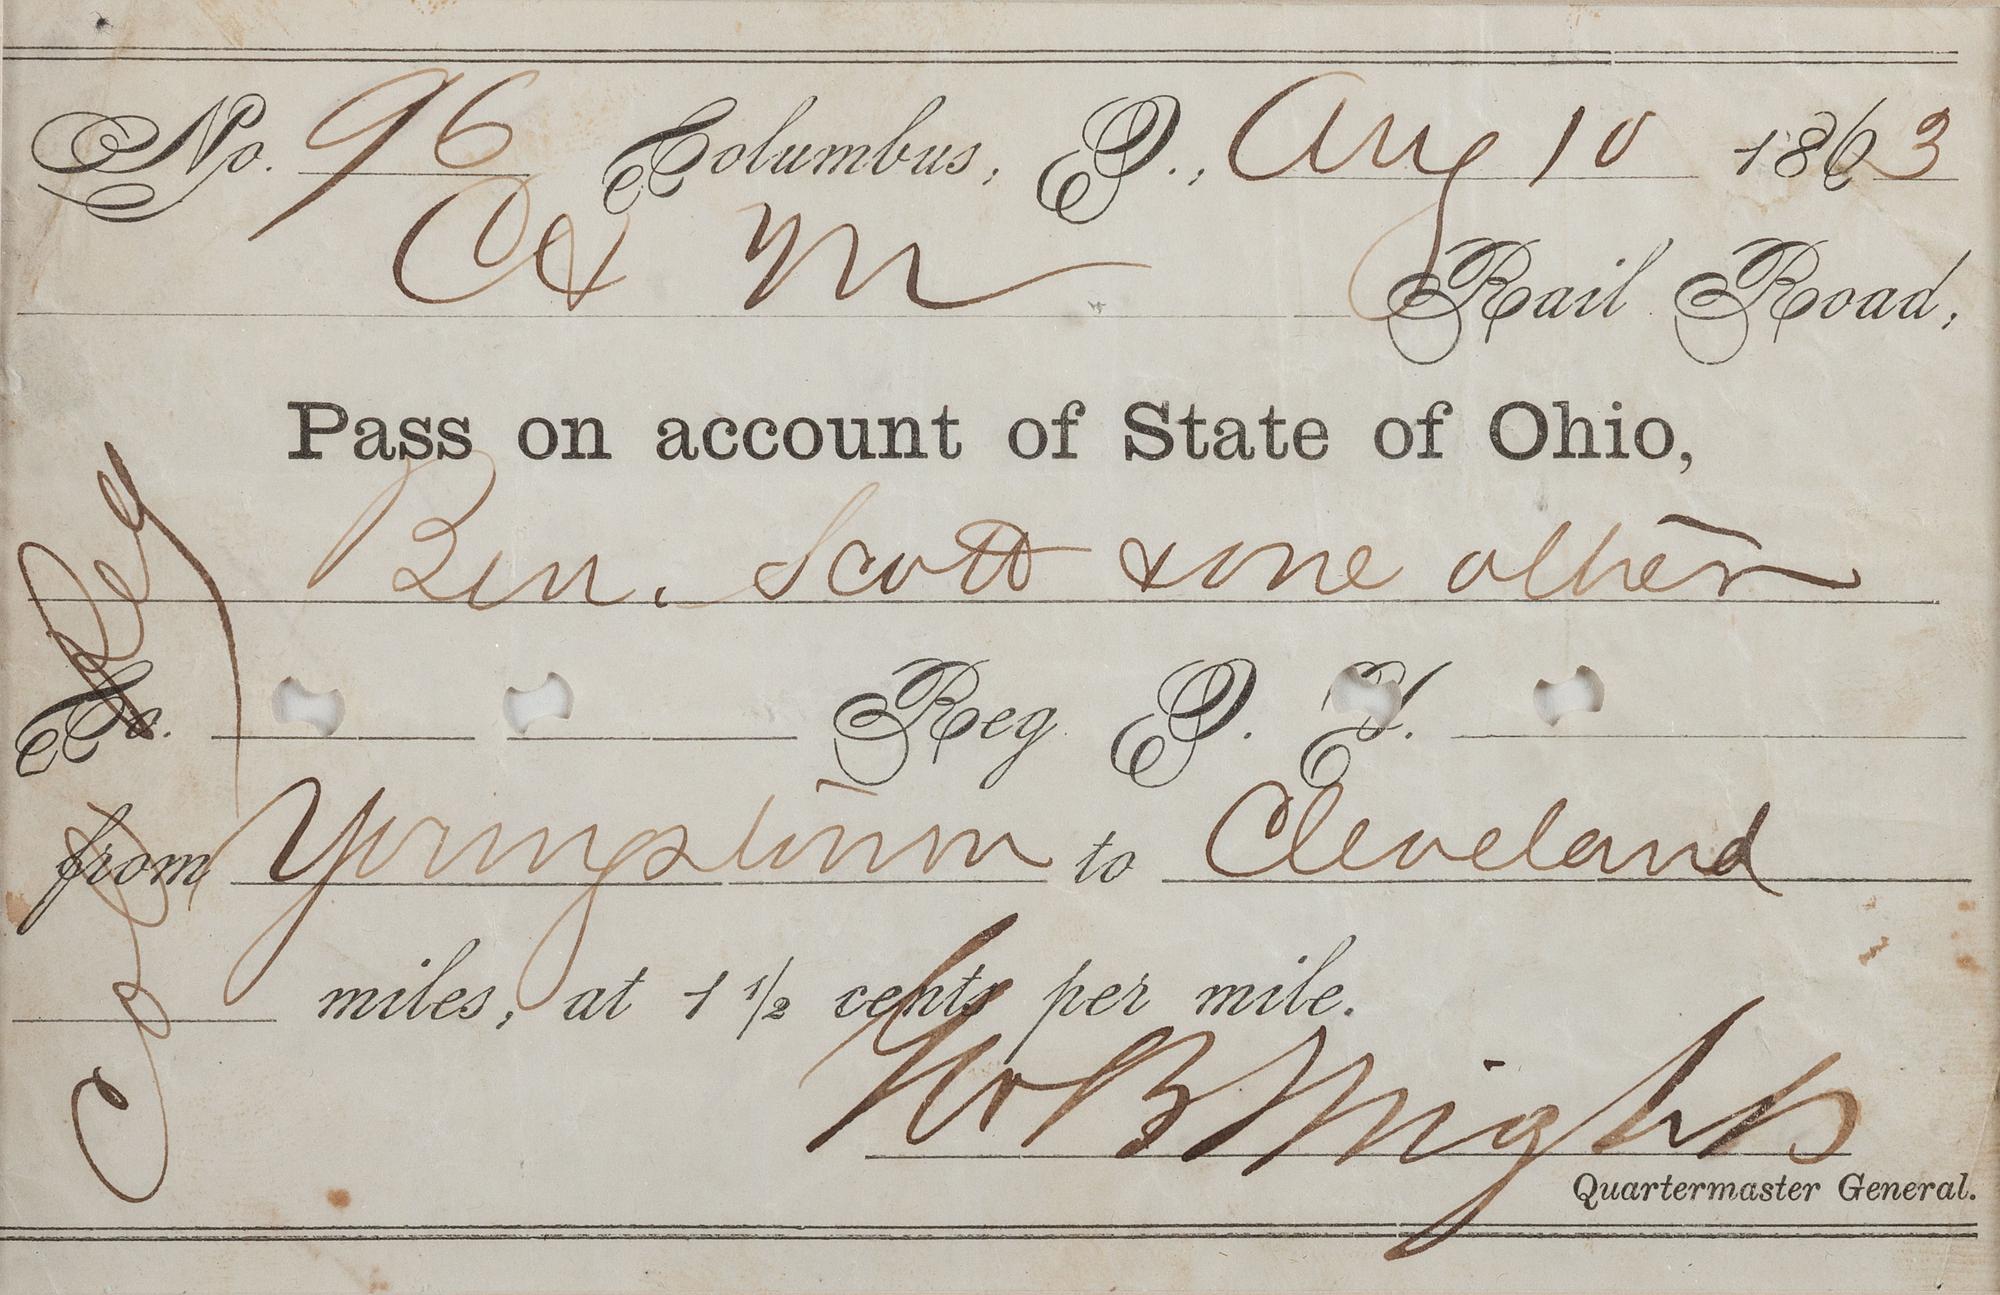 No. 96 Columbus, O., Aug 10 1863
C & M Rail Road,
Pass on account of State of Ohio,
Ben. Scott & one other
Co. Reg O. V.
from Youngstown to Cleveland
miles, at 1 1/2 cents per mile.
Quartermaster General.
Col Reg